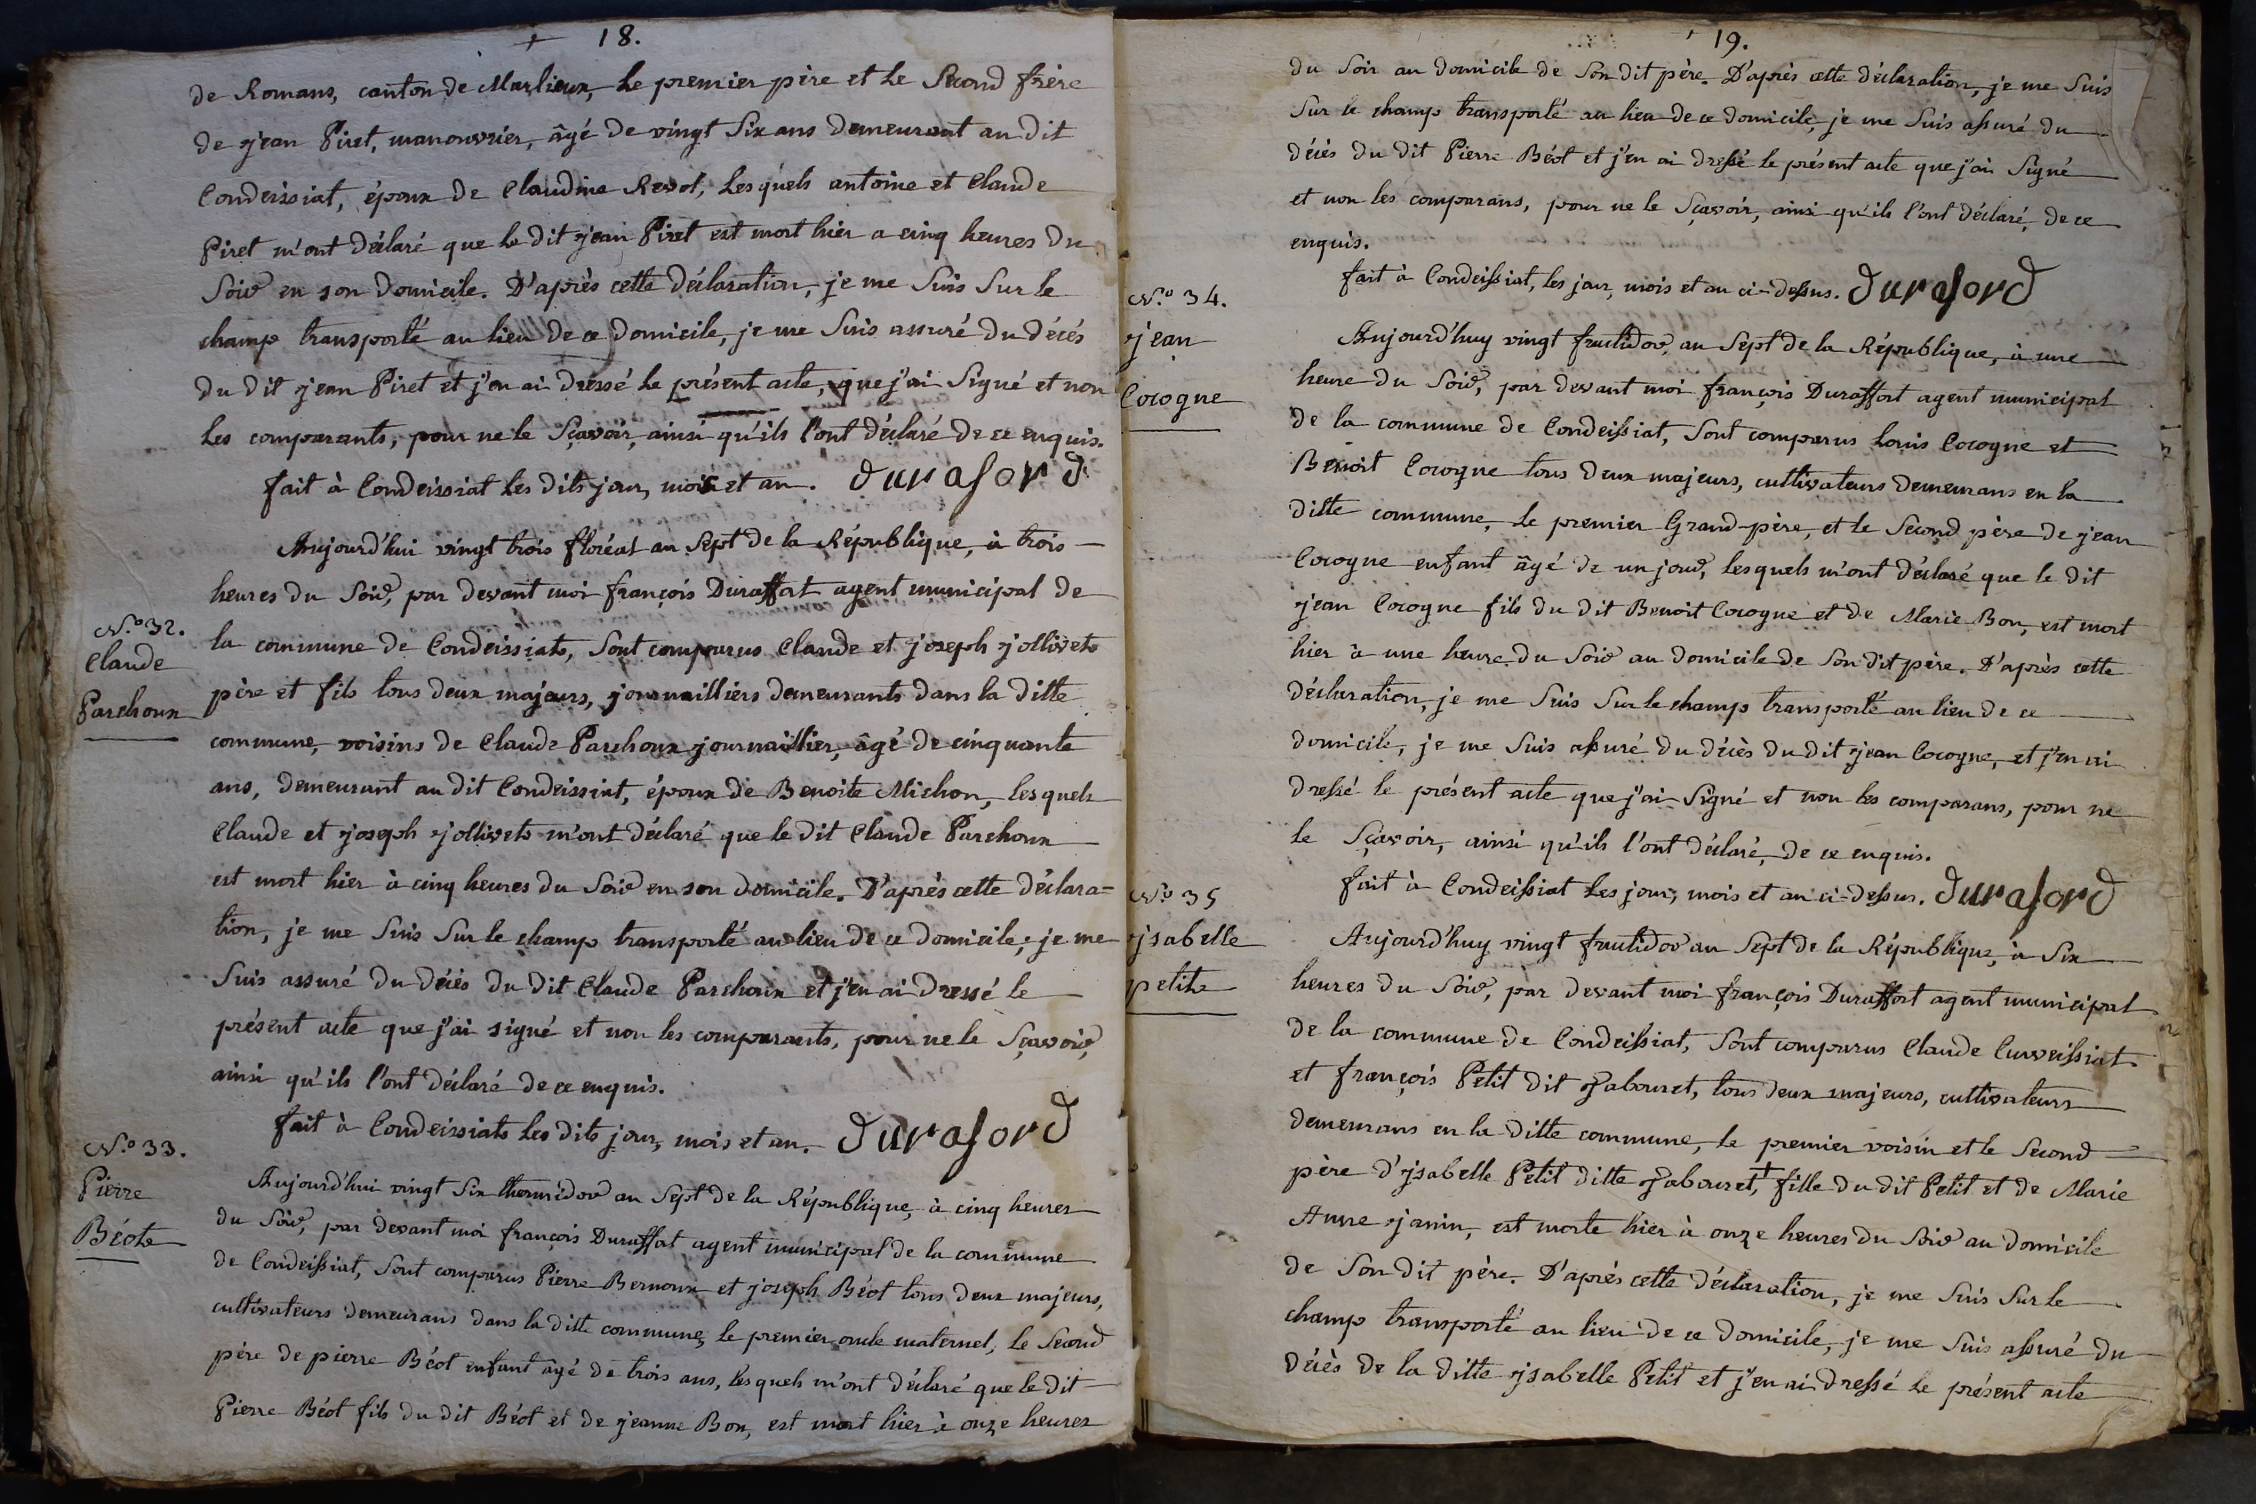 18.
de Romans, canton de Marlieux, le premier père et le Second frère
de jean Piret, manouvrier, âgé de vingt Six ans demeurant au dit
Condeissiat, époux de Claudine Revol, les quels antoine et Claude
Piret m'ont déclaré que le dit jean Piret est mort hier a cinq heures du
Soir en son domicile. D'après cette déclaration, je me Suis Sur le
champ transporté au lieu de ce domicile, je me Suis assuré du décés
du dit jean Piret et j'en ai dressé le présent acte, que j'ai Signé et non
les comparants, pour ne le Sçavoir, ainsi qu'ils l'ont déclaré de ce enquis.
fait à Condeissiat les dits jour, mois et an. duraford
N.º 32.
Claude
Parchoux
Aujourd'hui vingt trois floréal an Sept de la République, à trois
heures du Soir, par devant moi françois Duraffort agent municipal de
la commune de Condeissiats, Sont comparus Claude et joseph jollivets
père et fils tous deux majeurs, journailliers demeurants dans la ditte
commune, voisins de Claude Parchoux journaillier, âgé de cinquante
ans, demeurant au dit Condeissiat, époux de Benoite Michon, les quels
Claude et joseph jollivets m'ont déclaré que le dit Claude Parchoux
est mort hier à cinq heures du Soir en son domicile. D'après cette déclara=
tion, je me Suis Sur le champ transporté au lieu de ce domicile, je me
Suis assuré du décès du dit Claude Parchoux et j'en ai dressé le
présent acte que j'ai signé et non les comparants, pour ne le Sçavoir,
ainsi qu'ils l'ont déclaré de ce enquis.
fait à Condeissiats les dits jour, mois et an. duraford
N.º 33.
Pierre
Béot
Aujourd'hui vingt Six thermidor an Sept de la République, à cinq heures
du Soir, par devant moi françois Duraffort agent municipal de la commune
de Condeissiat, Sont comparus Pierre Bernoux et joseph Béot tous deux majeurs,
cultivateurs demeurans dans la ditte commune, le premier oncle maternel, le Second
père de pierre Béot enfant âgé de trois ans, les quels m'ont déclaré que le dit
Pierre Béot fils du dit Béot et de jeanne Bon, est mort hier à onze heures
19.
du Soir au domicile de Son dit père. D'après cette déclaration, je me Suis
Sur le champ transporté au lieu de ce domicile, je me Suis assuré du
décès du dit Pierre Béot et j'en ai dressé le présent acte que j'ai Signé
et non les comparans, pour ne le Sçavoir, ainsi qu'ils l'ont déclaré, de ce
enquis.
fait à Condeissiat, les jour, mois et an ci-dessus. duraford
N.º 34.
jean
Cocogne
Aujourd'huy vingt fructidor, an Sept de la République, à une
heure du Soir, par devant moi françois Duraffort agent municipal
de la commune de Condeissiat, Sont comparus Louis Cocogne et
Benoit Cocogne tous deux majeurs, cultivateurs demeurans en la
ditte commune, le premier Grand-père, et le Second père de jean
Cocogne enfant âgé de un jour, lesquels m'ont déclaré que le dit
jean Cocogne fils du dit Benoit Cocogne et de Marie Bon, est mort
hier à une heure du Soir au domicile de Son dit père. D'après cette
déclaration, je me Suis Sur le champ transporté au lieu de ce
domicile, je me Suis assuré du décès du dit jean Cocogne, et j'en ai
dressé le présent acte que j'ai Signé et non les comparans, pour ne
le Sçavoir, ainsi qu'ils l'ont déclaré, de ce enquis.
fait à Condeissiat les jour, mois et an ci-dessus. duraford
N.º 35
jsabelle
petit
Aujourd'huy vingt fructidor an Sept de la République, à Six
heures du Soir, par devant moi françois Duraffort agent municipal
de la commune de Condeissiat, Sont comparus Claude Curveissiat
et françois Petit dit Jabouret, tous deux majeurs, cultivateurs
demeurans en la ditte commune, le premier voisin et le Second
père d'jsabelle Petit ditte Jabouret, fille du dit Petit et de Marie
Anne janin, est morte hier à onze heures du Soir au domicile
de Son dit père. D'après cette déclaration, je me Suis Sur le
champ transporté au lieu de ce domicile, je me Suis assuré du
décès de la ditte jsabelle Petit et j'en ai dressé le présent acte